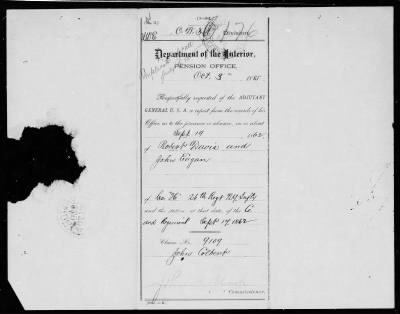 Department of the Interior,
PENSION OFFICE,
Oct. 3 188
Respectfully requested of the ADJUTANT
GENERAL U. S. A. a report from the records of his
Office as to the presence or absence, on or about
Sept. 19 1862
of Robert Davis and
John Eagan
of Co. H. 26th Regt N.Y. Infty
and the station at that date of the Co.
and Regiment Sept. 17, 1862
Claim No. 9109
John Colbert
Commissioner.